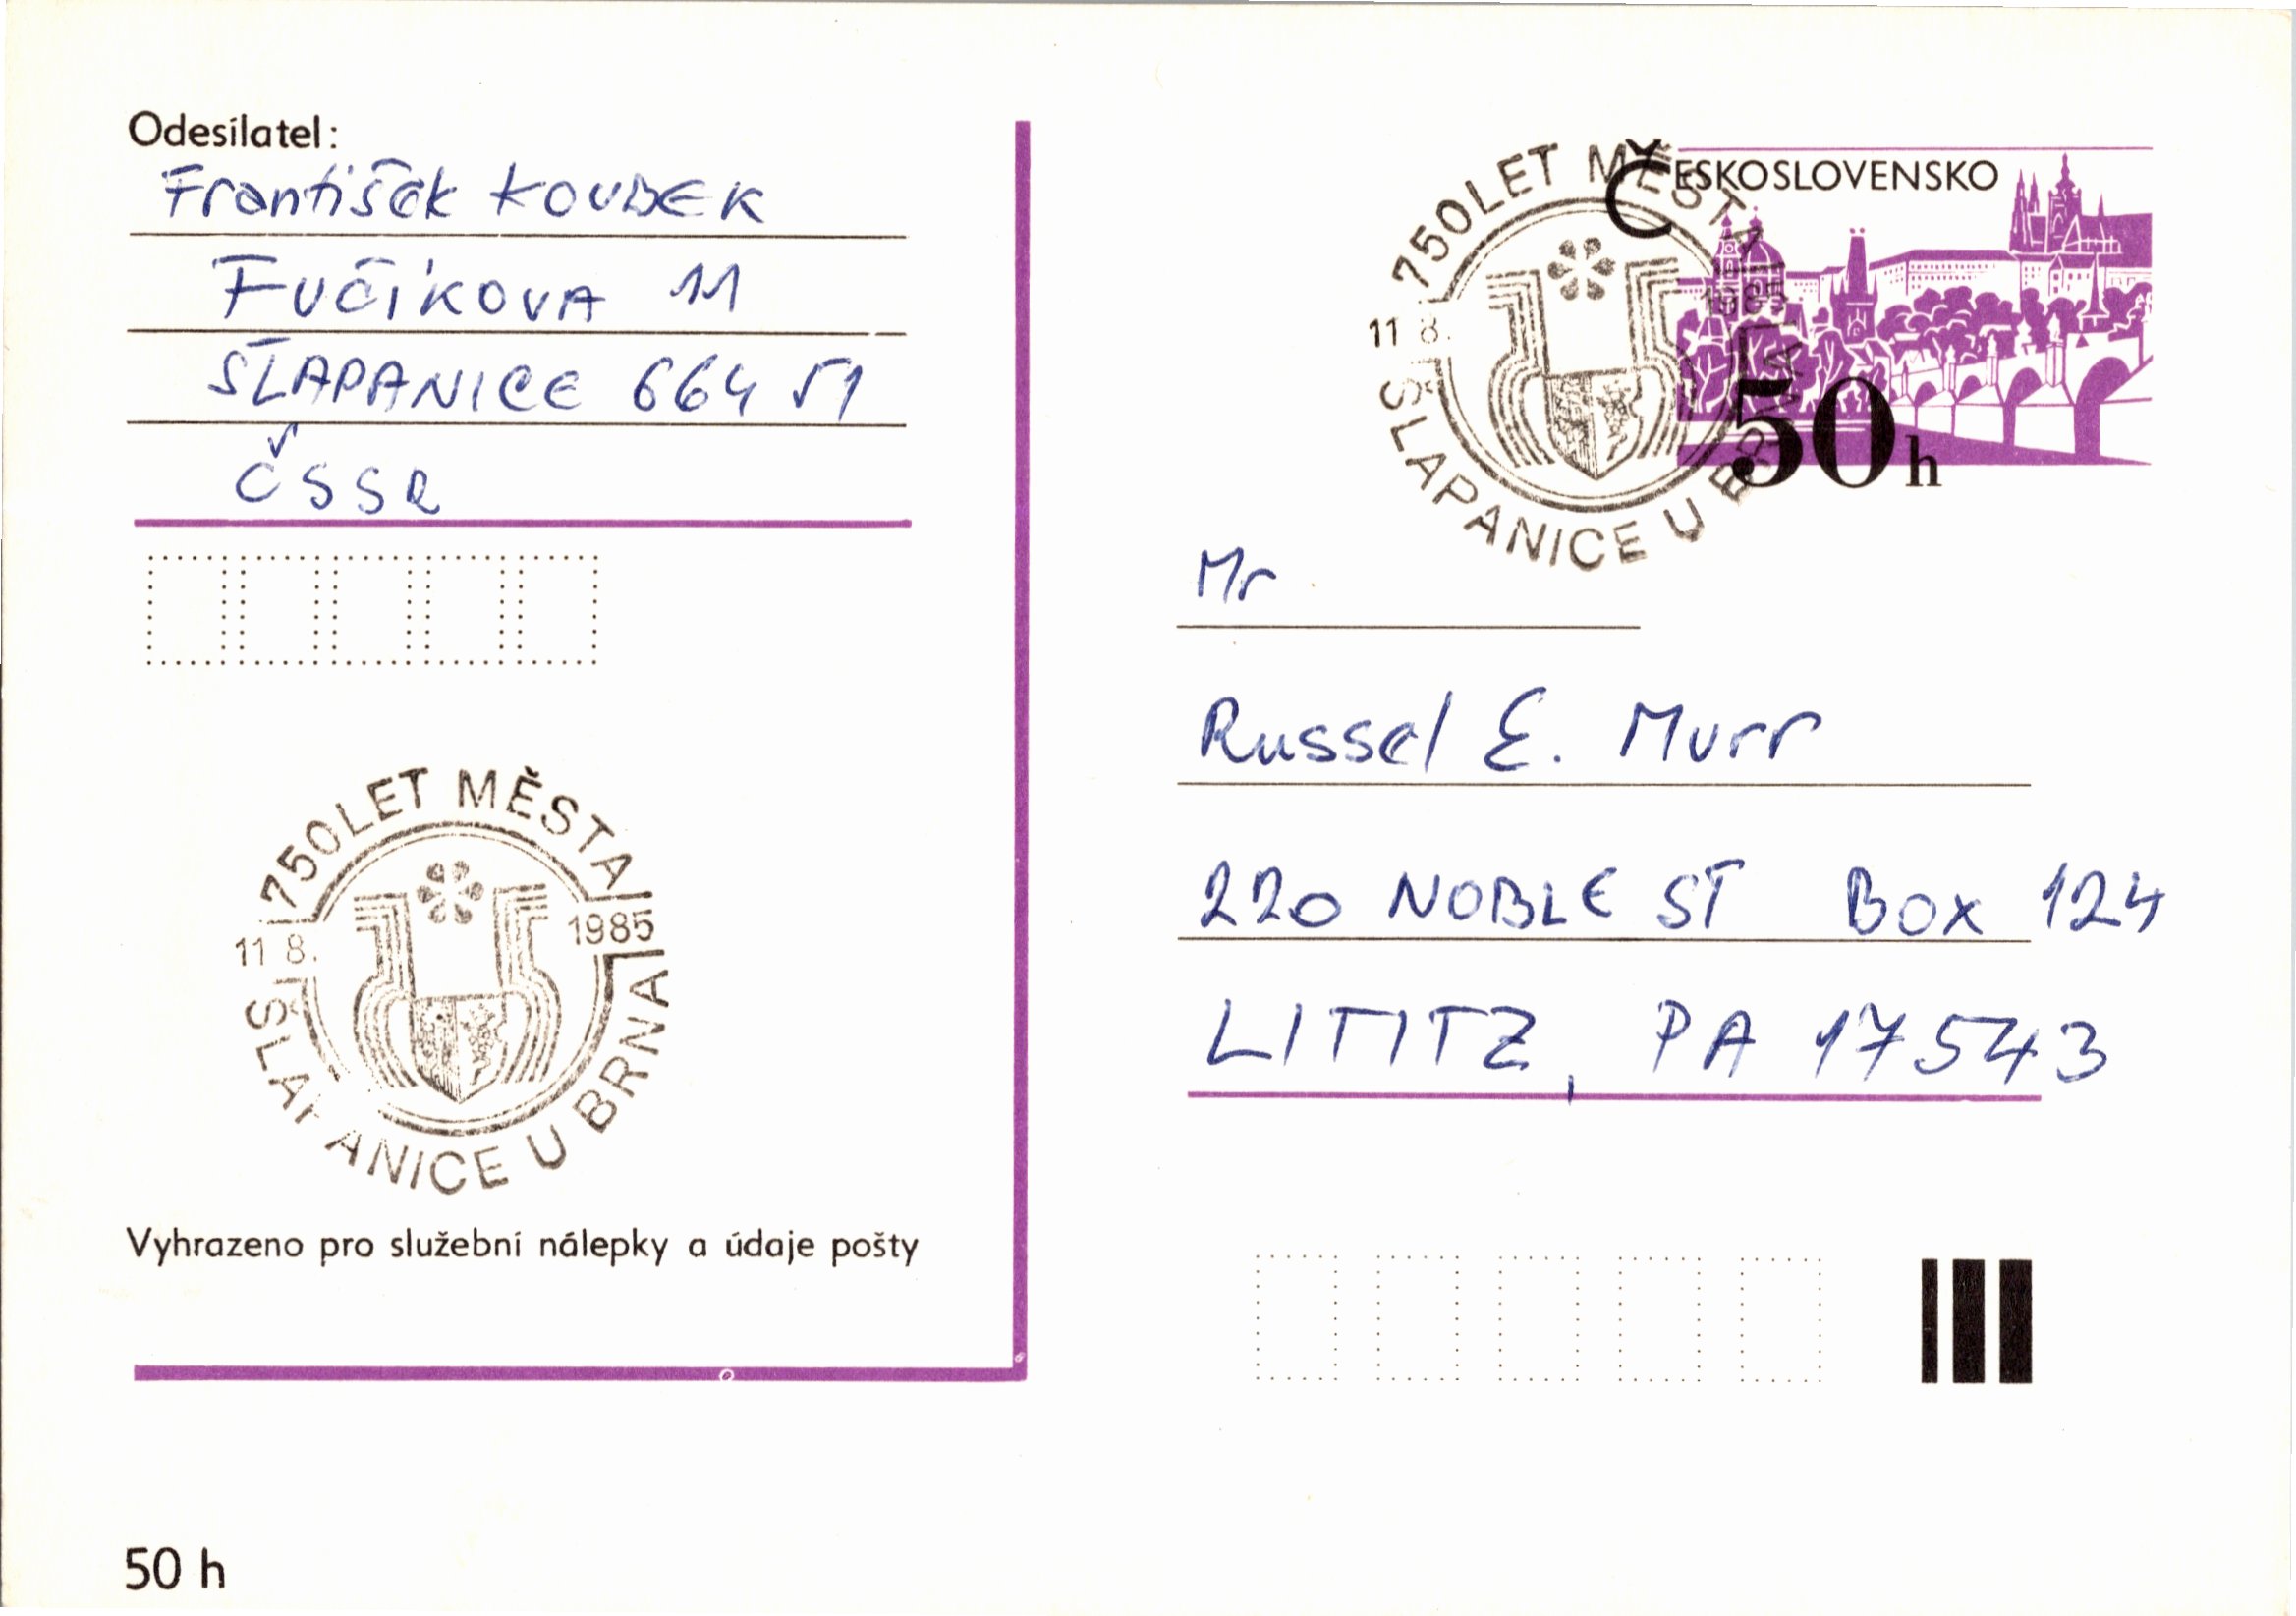 Odesílatel:
František KOUBEK
FUČÍKOVA 11
ŠLAPANICE 664 51
ČSSR
750 LET MĚSTA
11 8. 1985
ŠLAPANICE U BRNA
Vyhrazeno pro služební nálepky a údaje pošty
50 h
ČESKOSLOVENSKO
750 LET MĚSTA
11 8. 1985
ŠLAPANICE U BRNA
50 h
Mr
Russel E. Murr
220 NOBLE ST BOX 124
LITITZ, PA 17543